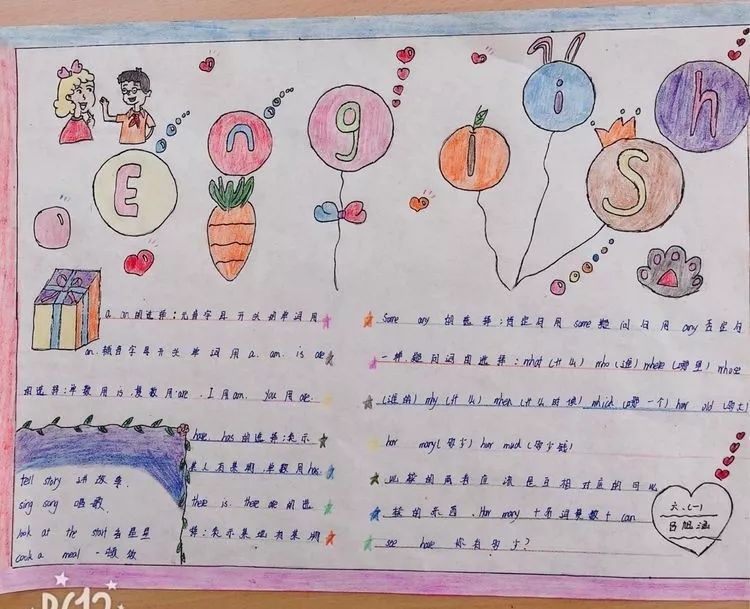 English
a. an 的选择:元音字母开头的单词用
an. 辅音字母开头单词用 a. am. is are
的选择:单数用 is. 复数用 are. I 用 am. you 用 are.
have has 的选择:表示
某人有某物.单数用 has.
there is. there are 的选
择:表示某地有某物
tell story 讲故事.
sing song 唱歌.
look at the start 看星星
cook a meal - 顿饭
Some any 的选择:肯定句用 some 疑问句用 any 否定句
一种疑问词用选择: what (什么) who (谁) where (哪里) whose
(谁的) why (什么) when (什么时候) which (哪一个) how old (多大)
how many (多少) how much (多少钱)
比较的两者应该是互相对应的可比
较的东西. How many + 名词复数 + can
see have 你有多少?
六.(一)